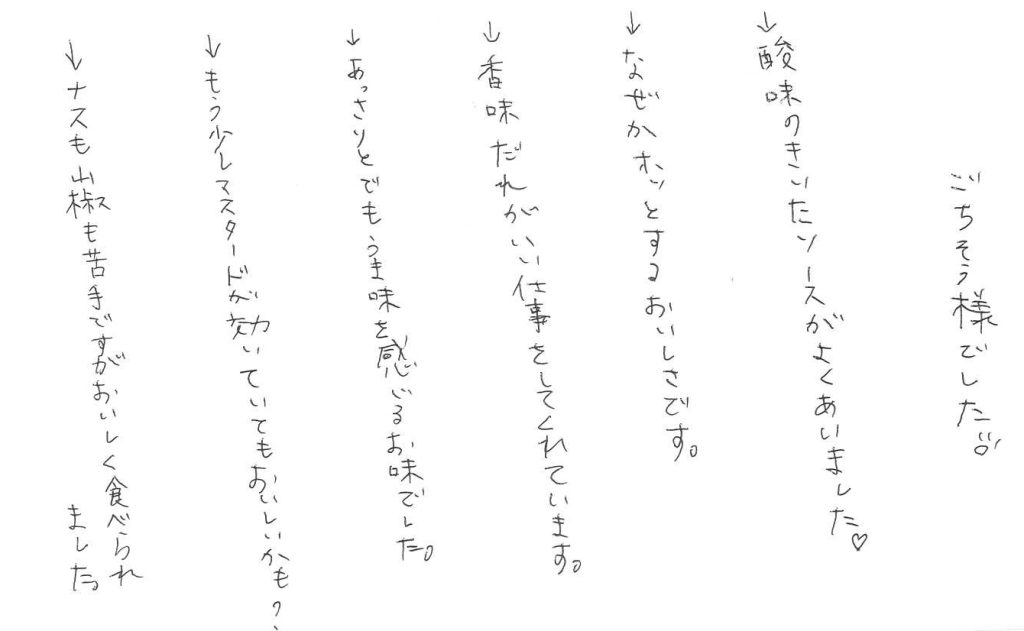 ごちそう様でした
↓酸味のきいたソースがよくあいました♡
↓なぜかホッとするおいしさです。
↓香味だれがいい仕事をしてくれています。
↓あっさりとでもうま味を感じるお味でした。
↓もう少しマスタードが効いていてもおいしいかも?
↓ナスも山椒も苦手ですがおいしく食べられ
ました。